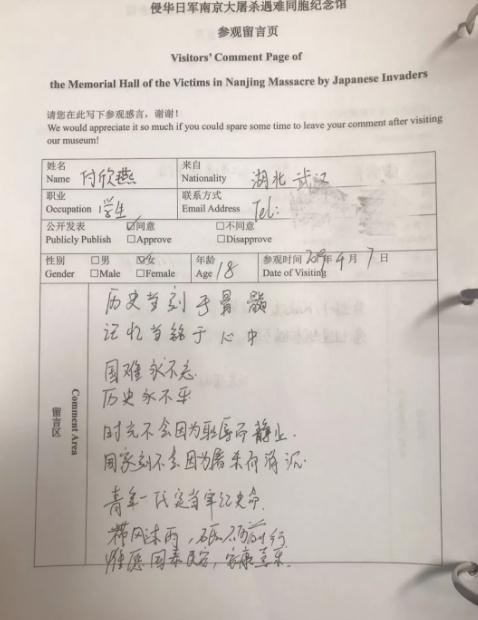 侵华日军南京大屠杀遇难同胞纪念馆
参观留言页
Visitors' Comment Page of
the Memorial Hall of the Victims in Nanjing Massacre by Japanese Invaders
请您在此写下参观感言，谢谢！
We would appreciate it so much if you could spare some time to leave your comment after visiting
our museum!
姓名 来自
Name 付欣燕 Nationality 湖北 武汉
职业 联系方式
Occupation 学生 Email Address Tel:
公开发表 ☑同意 □不同意
Publicly Publish □Approve □Disapprove
性别 □男 ☑女 年龄 参观时间 2019年4月7日
Gender □Male □Female Age 18 Date of Visiting
留言区 Comment Area
历史当刻于骨髓
记忆当铭于心中
国难永不忘
历史永不平
时光不会因为耻辱而静止.
国家刻不会因为屠杀而消沉.
青年一代定当牢记史命.
栉风沐雨，砥砺前行
惟愿国泰民安，家康喜乐.